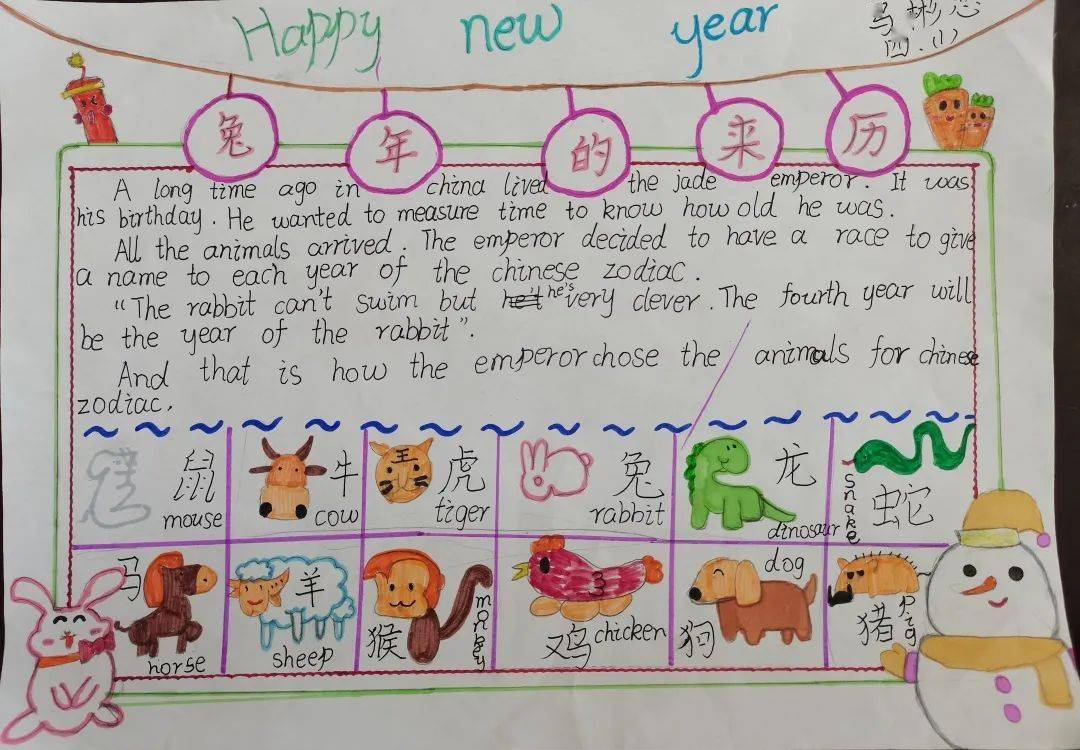 Happy new year
马彬
四.(1)
兔年的来历
A long time ago in china lived the jade emperor. It was
his birthday. He wanted to measure time to know how old he was.
All the animals arrived. The emperor decided to have a race to give
a name to each year of the chinese zodiac.
"The rabbit can't swim but he's very clever. The fourth year will
be the year of the rabbit".
And that is how the emperor chose the animals for chinese
zodiac.
鼠 mouse
牛 cow
王
虎 tiger
兔 rabbit
龙 dinosaur
snake 蛇
马 horse
羊 sheep
猴 monkey
鸡 chicken
狗 dog
猪 pig